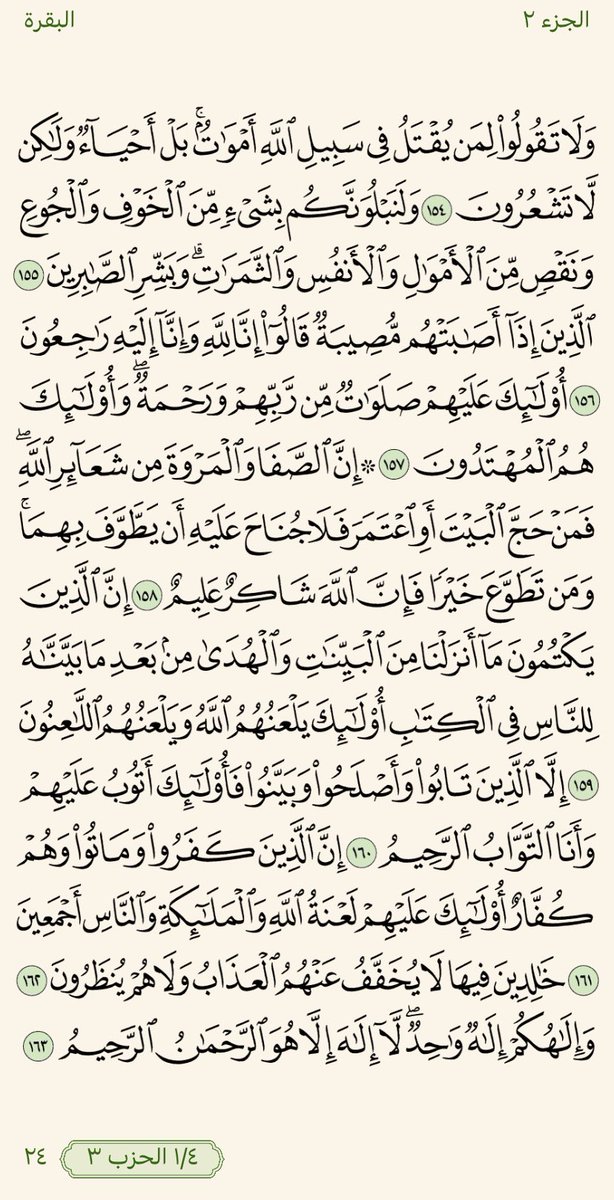 الجزء ٢
البقرة
وَلَا تَقُولُوا۟ لِمَن يُقْتَلُ فِى سَبِيلِ ٱللَّهِ أَمْوَٰتٌۢ ۚ بَلْ أَحْيَآءٌ وَلَـٰكِن
لَّا تَشْعُرُونَ ١٥٤ وَلَنَبْلُوَنَّكُم بِشَىْءٍ مِّنَ ٱلْخَوْفِ وَٱلْجُوعِ
وَنَقْصٍ مِّنَ ٱلْأَمْوَٰلِ وَٱلْأَنفُسِ وَٱلثَّمَرَٰتِ ۗ وَبَشِّرِ ٱلصَّـٰبِرِينَ ١٥٥
ٱلَّذِينَ إِذَآ أَصَـٰبَتْهُم مُّصِيبَةٌ قَالُوٓا۟ إِنَّا لِلَّهِ وَإِنَّآ إِلَيْهِ رَٰجِعُونَ
١٥٦ أُو۟لَـٰٓئِكَ عَلَيْهِمْ صَلَوَٰتٌ مِّن رَّبِّهِمْ وَرَحْمَةٌ ۖ وَأُو۟لَـٰٓئِكَ
هُمُ ٱلْمُهْتَدُونَ ١٥٧ ۞ إِنَّ ٱلصَّفَا وَٱلْمَرْوَةَ مِن شَعَآئِرِ ٱللَّهِ ۖ
فَمَنْ حَجَّ ٱلْبَيْتَ أَوِ ٱعْتَمَرَ فَلَا جُنَاحَ عَلَيْهِ أَن يَطَّوَّفَ بِهِمَا ۚ
وَمَن تَطَوَّعَ خَيْرًا فَإِنَّ ٱللَّهَ شَاكِرٌ عَلِيمٌ ١٥٨ إِنَّ ٱلَّذِينَ
يَكْتُمُونَ مَآ أَنزَلْنَا مِنَ ٱلْبَيِّنَـٰتِ وَٱلْهُدَىٰ مِنۢ بَعْدِ مَا بَيَّنَّـٰهُ
لِلنَّاسِ فِى ٱلْكِتَـٰبِ أُو۟لَـٰٓئِكَ يَلْعَنُهُمُ ٱللَّهُ وَيَلْعَنُهُمُ ٱللَّـٰعِنُونَ
١٥٩ إِلَّا ٱلَّذِينَ تَابُوا۟ وَأَصْلَحُوا۟ وَبَيَّنُوا۟ فَأُو۟لَـٰٓئِكَ أَتُوبُ عَلَيْهِمْ
وَأَنَا ٱلتَّوَّابُ ٱلرَّحِيمُ ١٦٠ إِنَّ ٱلَّذِينَ كَفَرُوا۟ وَمَاتُوا۟ وَهُمْ
كُفَّارٌ أُو۟لَـٰٓئِكَ عَلَيْهِمْ لَعْنَةُ ٱللَّهِ وَٱلْمَلَـٰٓئِكَةِ وَٱلنَّاسِ أَجْمَعِينَ
١٦١ خَـٰلِدِينَ فِيهَا لَا يُخَفَّفُ عَنْهُمُ ٱلْعَذَابُ وَلَا هُمْ يُنظَرُونَ ١٦٢
وَإِلَـٰهُكُمْ إِلَـٰهٌ وَٰحِدٌ ۖ لَّآ إِلَـٰهَ إِلَّا هُوَ ٱلرَّحْمَـٰنُ ٱلرَّحِيمُ ١٦٣
١/٤ الحزب ٣
٢٤